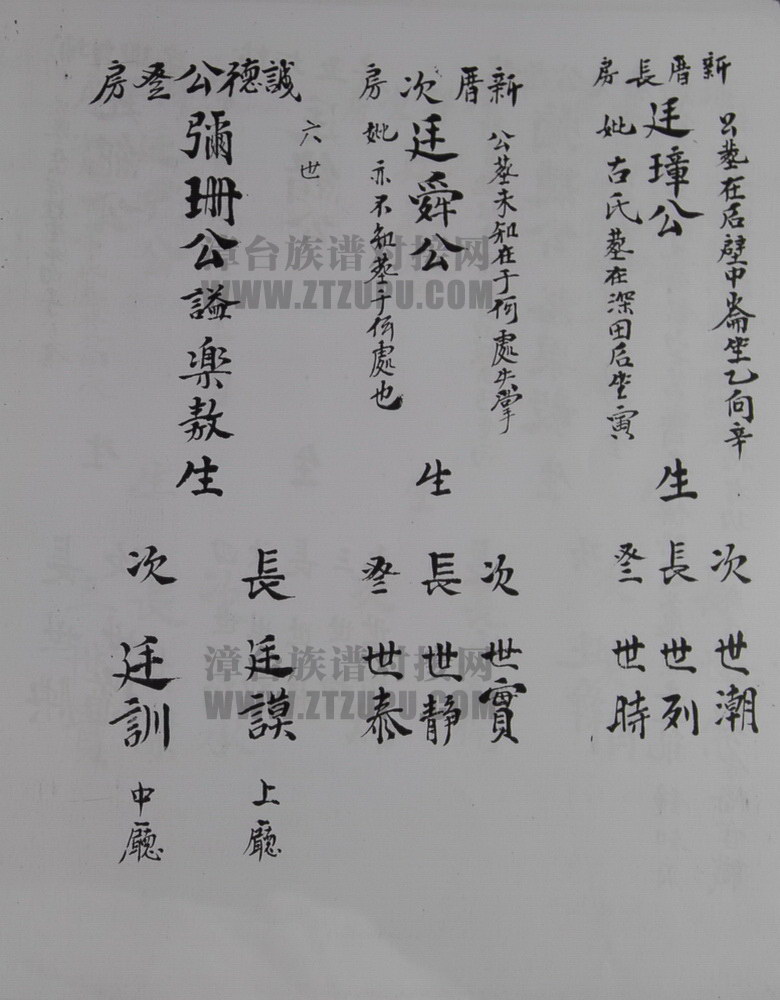 新厝長房
公墓在后壁中崙坐乙向辛
廷璋公
妣古氏墓在深田后坐寅
生
次 世潮
長 世列
叁 世時
新厝次房
公墓未知在于何處失掌
廷舜公
妣亦不知墓于何處也
生
次 世實
長 世静
叁 世泰
六世
誠德公叁房
彌珊公謚楽敖
生
長 廷謨 上廳
次 廷訓 中廳
漳台族谱对接网
WWW.ZTZUPU.COM
漳台族谱对接网
WWW.ZTZUPU.COM